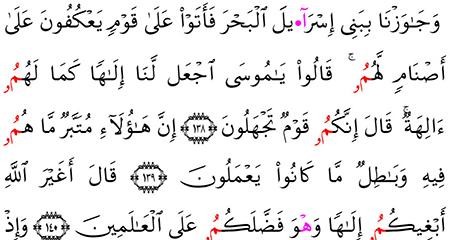 وَجَٰوَزۡنَا بِبَنِىٓ إِسۡرَآءِيلَ ٱلۡبَحۡرَ فَأَتَوۡاْ عَلَىٰ قَوۡمٍ يَعۡكُفُونَ عَلَىٰٓ
أَصۡنَامٍ لَّهُمُۥ ۚ قَالُواْ يَٰمُوسَى ٱجۡعَل لَّنَا إِلَٰهًا كَمَا لَهُمُۥ
ءَالِهَةٌ ۚ قَالَ إِنَّكُمُۥ قَوۡمٌ تَجۡهَلُونَ ﴿١٣٨﴾ إِنَّ هَٰٓؤُلَآءِ مُتَبَّرٌ مَّا هُمُۥ
فِيهِ وَبَٰطِلٌ مَّا كَانُواْ يَعۡمَلُونَ ﴿١٣٩﴾ قَالَ أَغَيۡرَ ٱللَّهِ
أَبۡغِيكُمُۥٓ إِلَٰهًا وَهۡوَ فَضَّلَكُمُۥ عَلَى ٱلۡعَٰلَمِينَ ﴿١٤٠﴾ وَإِذۡ